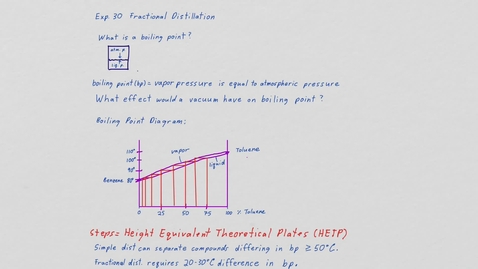 Exp. 30 Fractional Distillation
What is a boiling point?
atm. P
liq. P
boiling point (bp) = vapor pressure is equal to atmospheric pressure
What effect would a vacuum have on boiling point?
Boiling Point Diagram:
110°
100°
90°
80°
Benzene
vapor
liquid
Toluene
0 25 50 75 100 % Toluene
Steps = Height Equivalent Theoretical Plates (HETP)
Simple dist can separate compounds differing in bp ≥ 50°C.
Fractional dist. requires 20-30°C difference in bp.